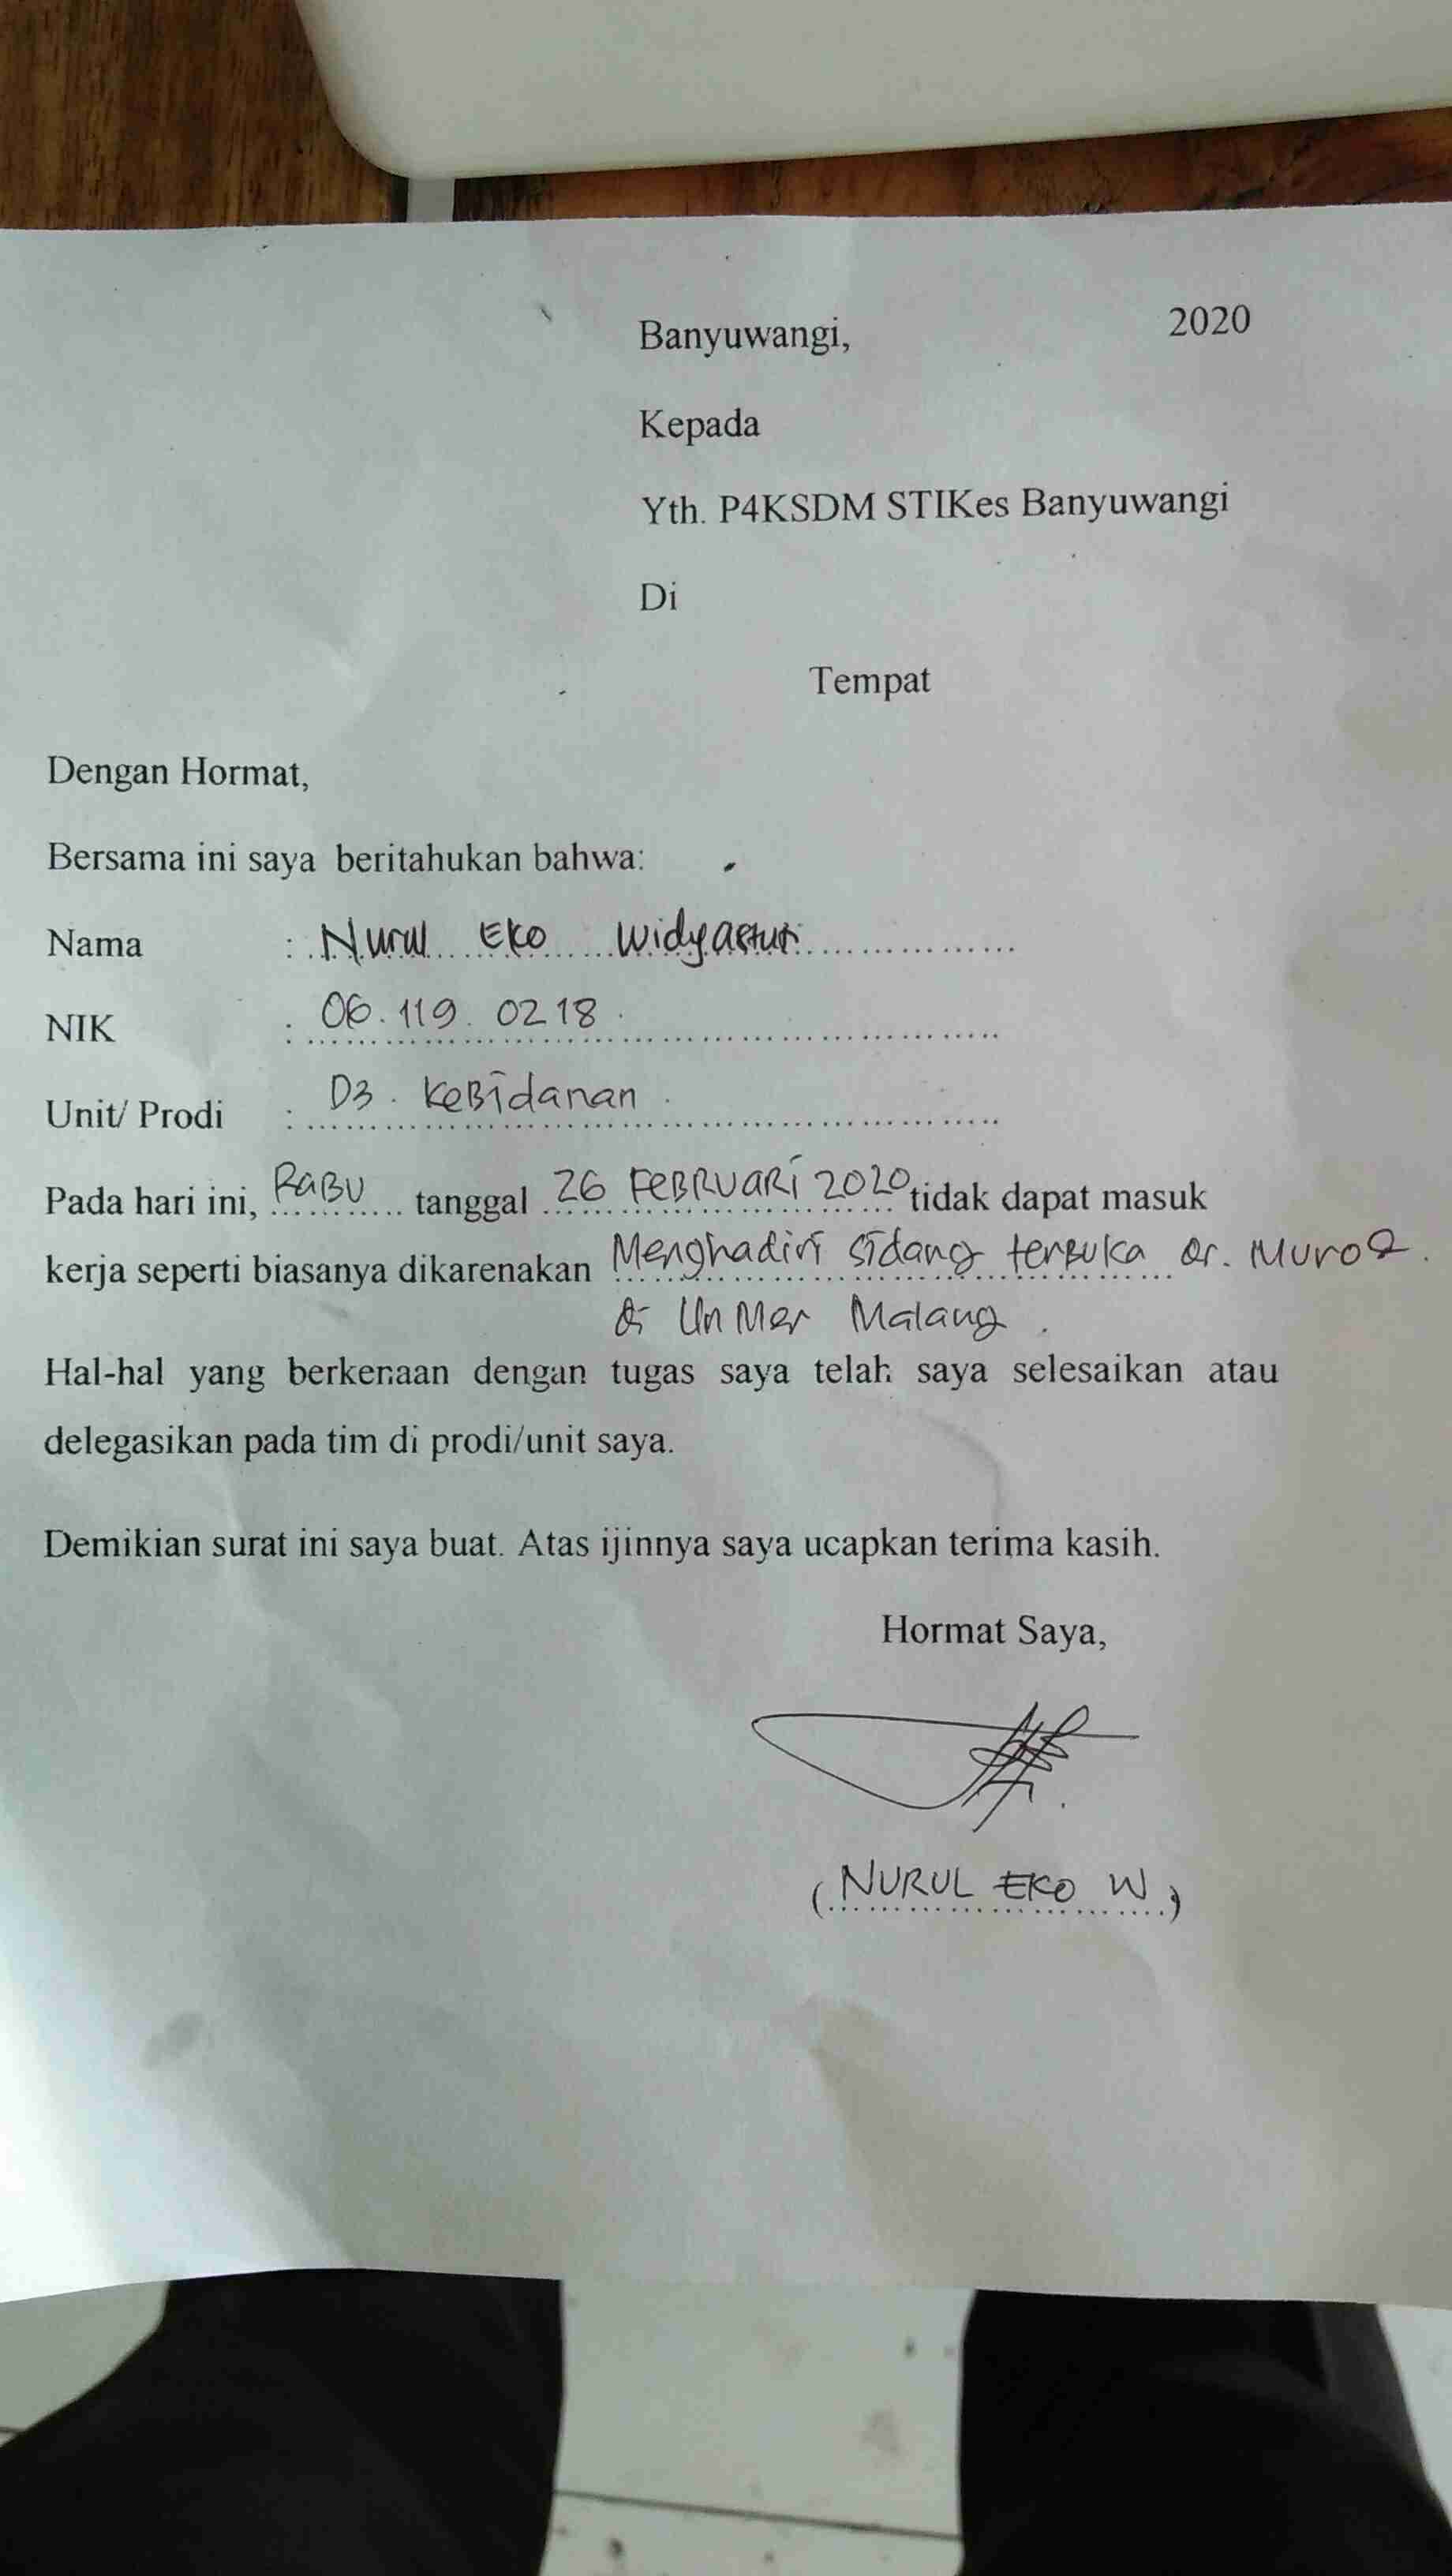 Banyuwangi, 2020
Kepada
Yth. P4KSDM STIKes Banyuwangi
Di
Tempat
Dengan Hormat,
Bersama ini saya beritahukan bahwa:
Nama : Nurul Eko Widyastuti
NIK : 06.119.0218.
Unit/ Prodi : D3. KeBidanan.
Pada hari ini, RABU tanggal 26 FeBRUARi 2020 tidak dapat masuk
kerja seperti biasanya dikarenakan Menghadiri sidang terBuka Dr. MuroQ.
di UnMer Malang.
Hal-hal yang berkenaan dengan tugas saya telah saya selesaikan atau
delegasikan pada tim di prodi/unit saya.
Demikian surat ini saya buat. Atas ijinnya saya ucapkan terima kasih.
Hormat Saya,
(NURUL EKO W)